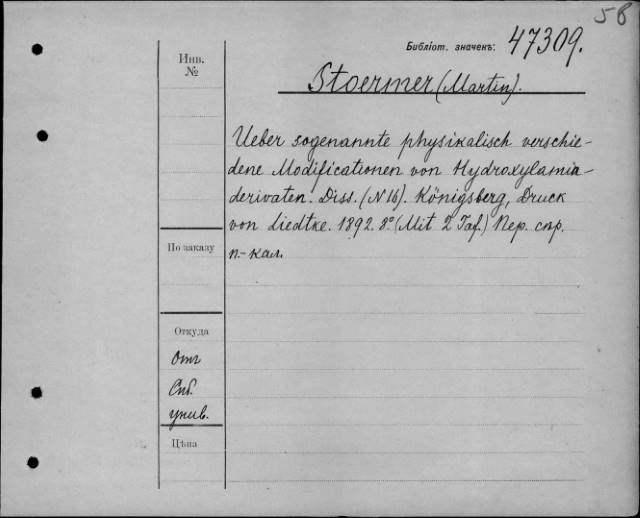 58
Библіот. значекъ: 47309.
Инв.
№
Stoermer (Martin).
Ueber sogenannte physikalisch verschie-
dene Modificationen von Hydroxylamin-
derivaten. Diss. (N 16). Königsberg, Druck
von Liedtke. 1892. 8° (Mit 2 Taf.) Пер. спр.
п.-кал.
По заказу
Откуда
Отг
Спб.
унив.
Цѣна